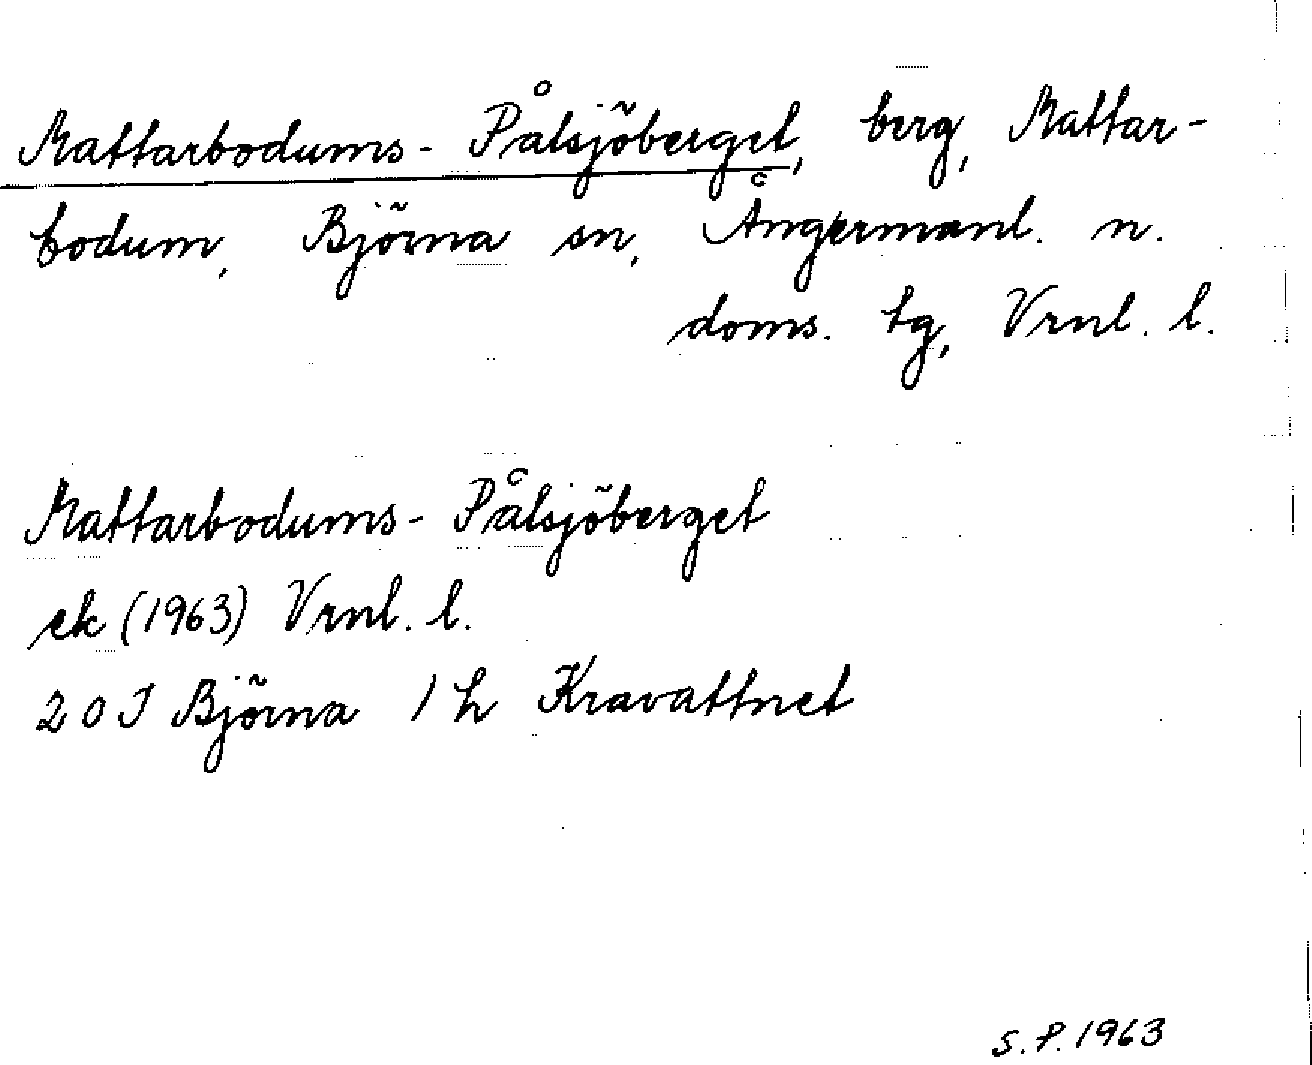 Mattarbodums-Pålsjöberget, berg, Mattar-
bodum, Björna sn, Ångermanl. n.
doms. tg, Vrnl. l.
Mattarbodums-Pålsjöberget
ek (1963) Vrnl. l.
20 J Björna 1 h Kravattnet
S.P. 1963